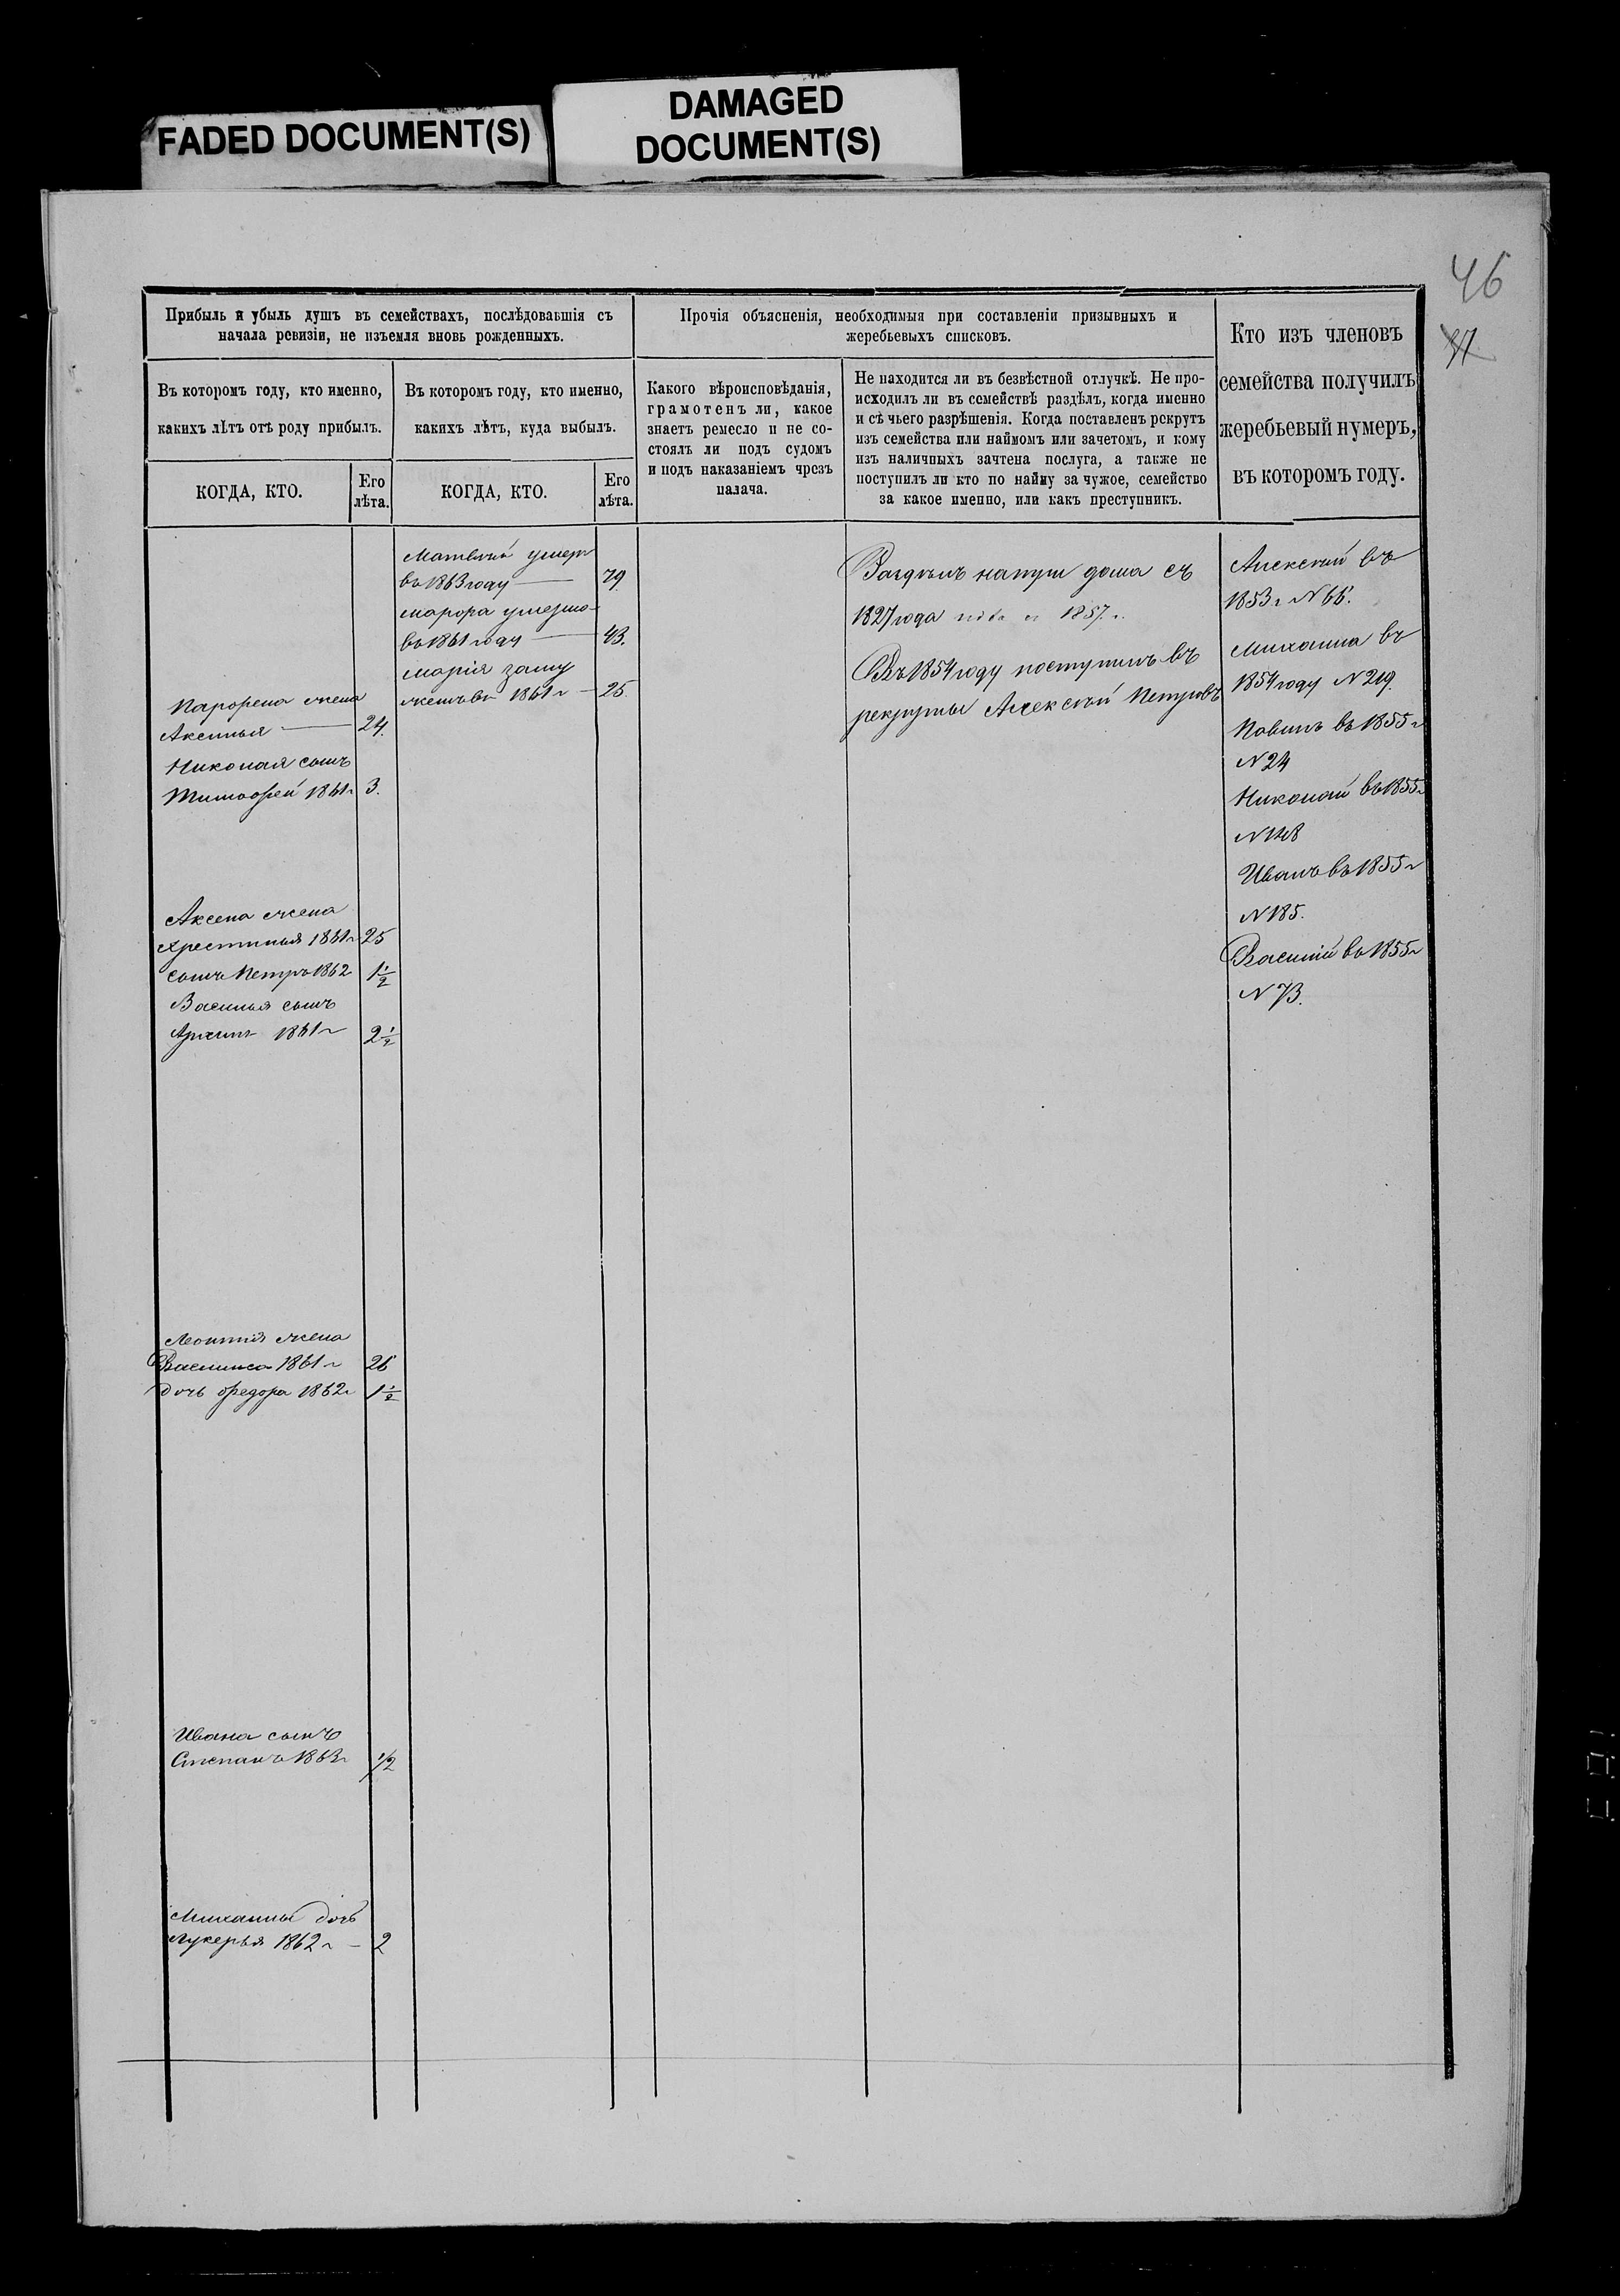 FADED DOCUMENT(S)
DAMAGED
DOCUMENT(S)
46
37
Прибыль и убыль душъ въ семействахъ, послѣдовавшія съ
начала ревизіи, не изъемля вновь рожденныхъ.
Въ которомъ году, кто именно,
какихъ лѣтъ отъ роду прибылъ.
КОГДА, КТО.
Его
лѣта.
Въ которомъ году, кто именно,
какихъ лѣтъ, куда выбылъ.
КОГДА, КТО.
Его
лѣта.
Прочія объясненія, необходимыя при составленіи призывныхъ и
жеребьевыхъ списковъ.
Какого вѣроисповѣданія,
грамотенъ ли, какое
знаетъ ремесло и не со-
стоялъ ли подъ судомъ
и подъ наказаніемъ чрезъ
палача.
Не находится ли въ безвѣстной отлучкѣ. Не про-
исходилъ ли въ семействѣ раздѣлъ, когда именно
и съ чьего разрѣшенія. Когда поставленъ рекрутъ
изъ семейства или наймомъ или зачетомъ, и кому
изъ наличныхъ зачтена послуга, а также не
поступилъ ли кто по найму за чужое, семейство
за какое именно, или какъ преступникъ.
Кто изъ членовъ
семейства получилъ
жеребьевый нумеръ,
въ которомъ году.
Парфена жена
Аксинья — 24.
Николая сынъ
Тимофей 1861 г 3.
Аксена жена
Хрестинья 1861 г 25
сынъ Петръ 1862 1 1/2
Василья сынъ
Архипъ 1861 г 2 1/2
Леонтія жена
Василиса 1861 г 26
дочь Федора 1862 г 1 1/2
Ивана сынъ
Степанъ 1863 г 1/2
Михаилы дочь
Лукерья 1862 г — 2
Матвѣй умеръ
въ 1863 году — 79.
Марфа умерла
въ 1861 году — 43.
Марія заму
жествѣ 1861 г — 25.
Раздѣлъ на три дома съ
1827 года 1857 г.
Въ 1854 году поступилъ въ
рекруты Алексѣй Петровъ
Алексѣй въ
1853 г N 66.
Михаила въ
1854 году N 219.
Павилъ въ 1855 г
N 24
Николай въ 1855 г
N 148
Иванъ въ 1855 г
N 185.
Василій въ 1855 г
N 73.